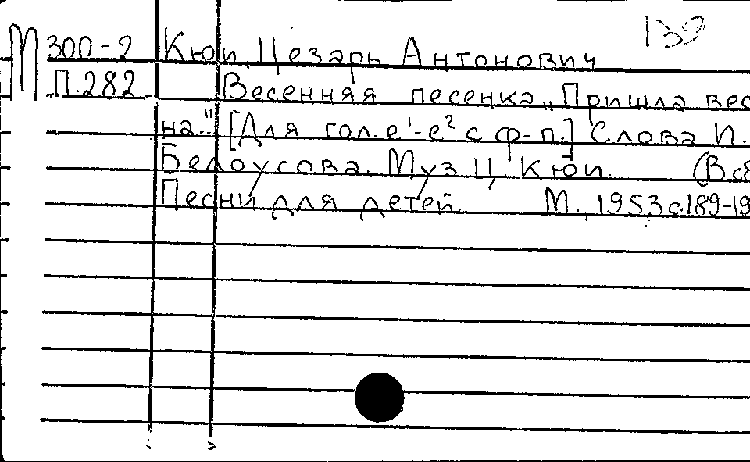 132
М 300-2 Кюи, Цезарь Антонович
П.282 Весенняя песенка „Пришла вес
на." [Для гол. e¹-e² с ф-п.] Слова И.
Белоусова. Муз. Ц. Кюи. (В сб
Песни для детей М., 1953 с.189-19